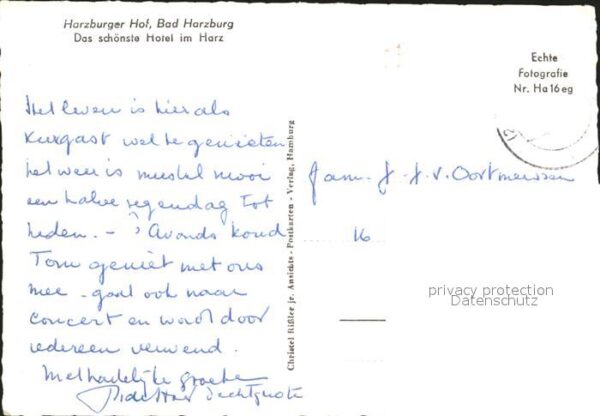 Harzburger Hof, Bad Harzburg
Das schönste Hotel im Harz
Echte
Fotografie
Nr. Ha 16 eg
Het leven is hier als
Kurgast wel te genieten
het weer is meestal mooi
een halve regendag tot
heden. - 's Avonds koud
Tom geniet met ons
mee - gaat ook naar
concert en wordt door
iedereen verwend.
Met hartelijke groeten
Fam. J. J. v. Oortmerssen
16
Christel Rißler jr. Ansichts - Postkarten - Verlag, Hamburg
privacy protection
Datenschutz